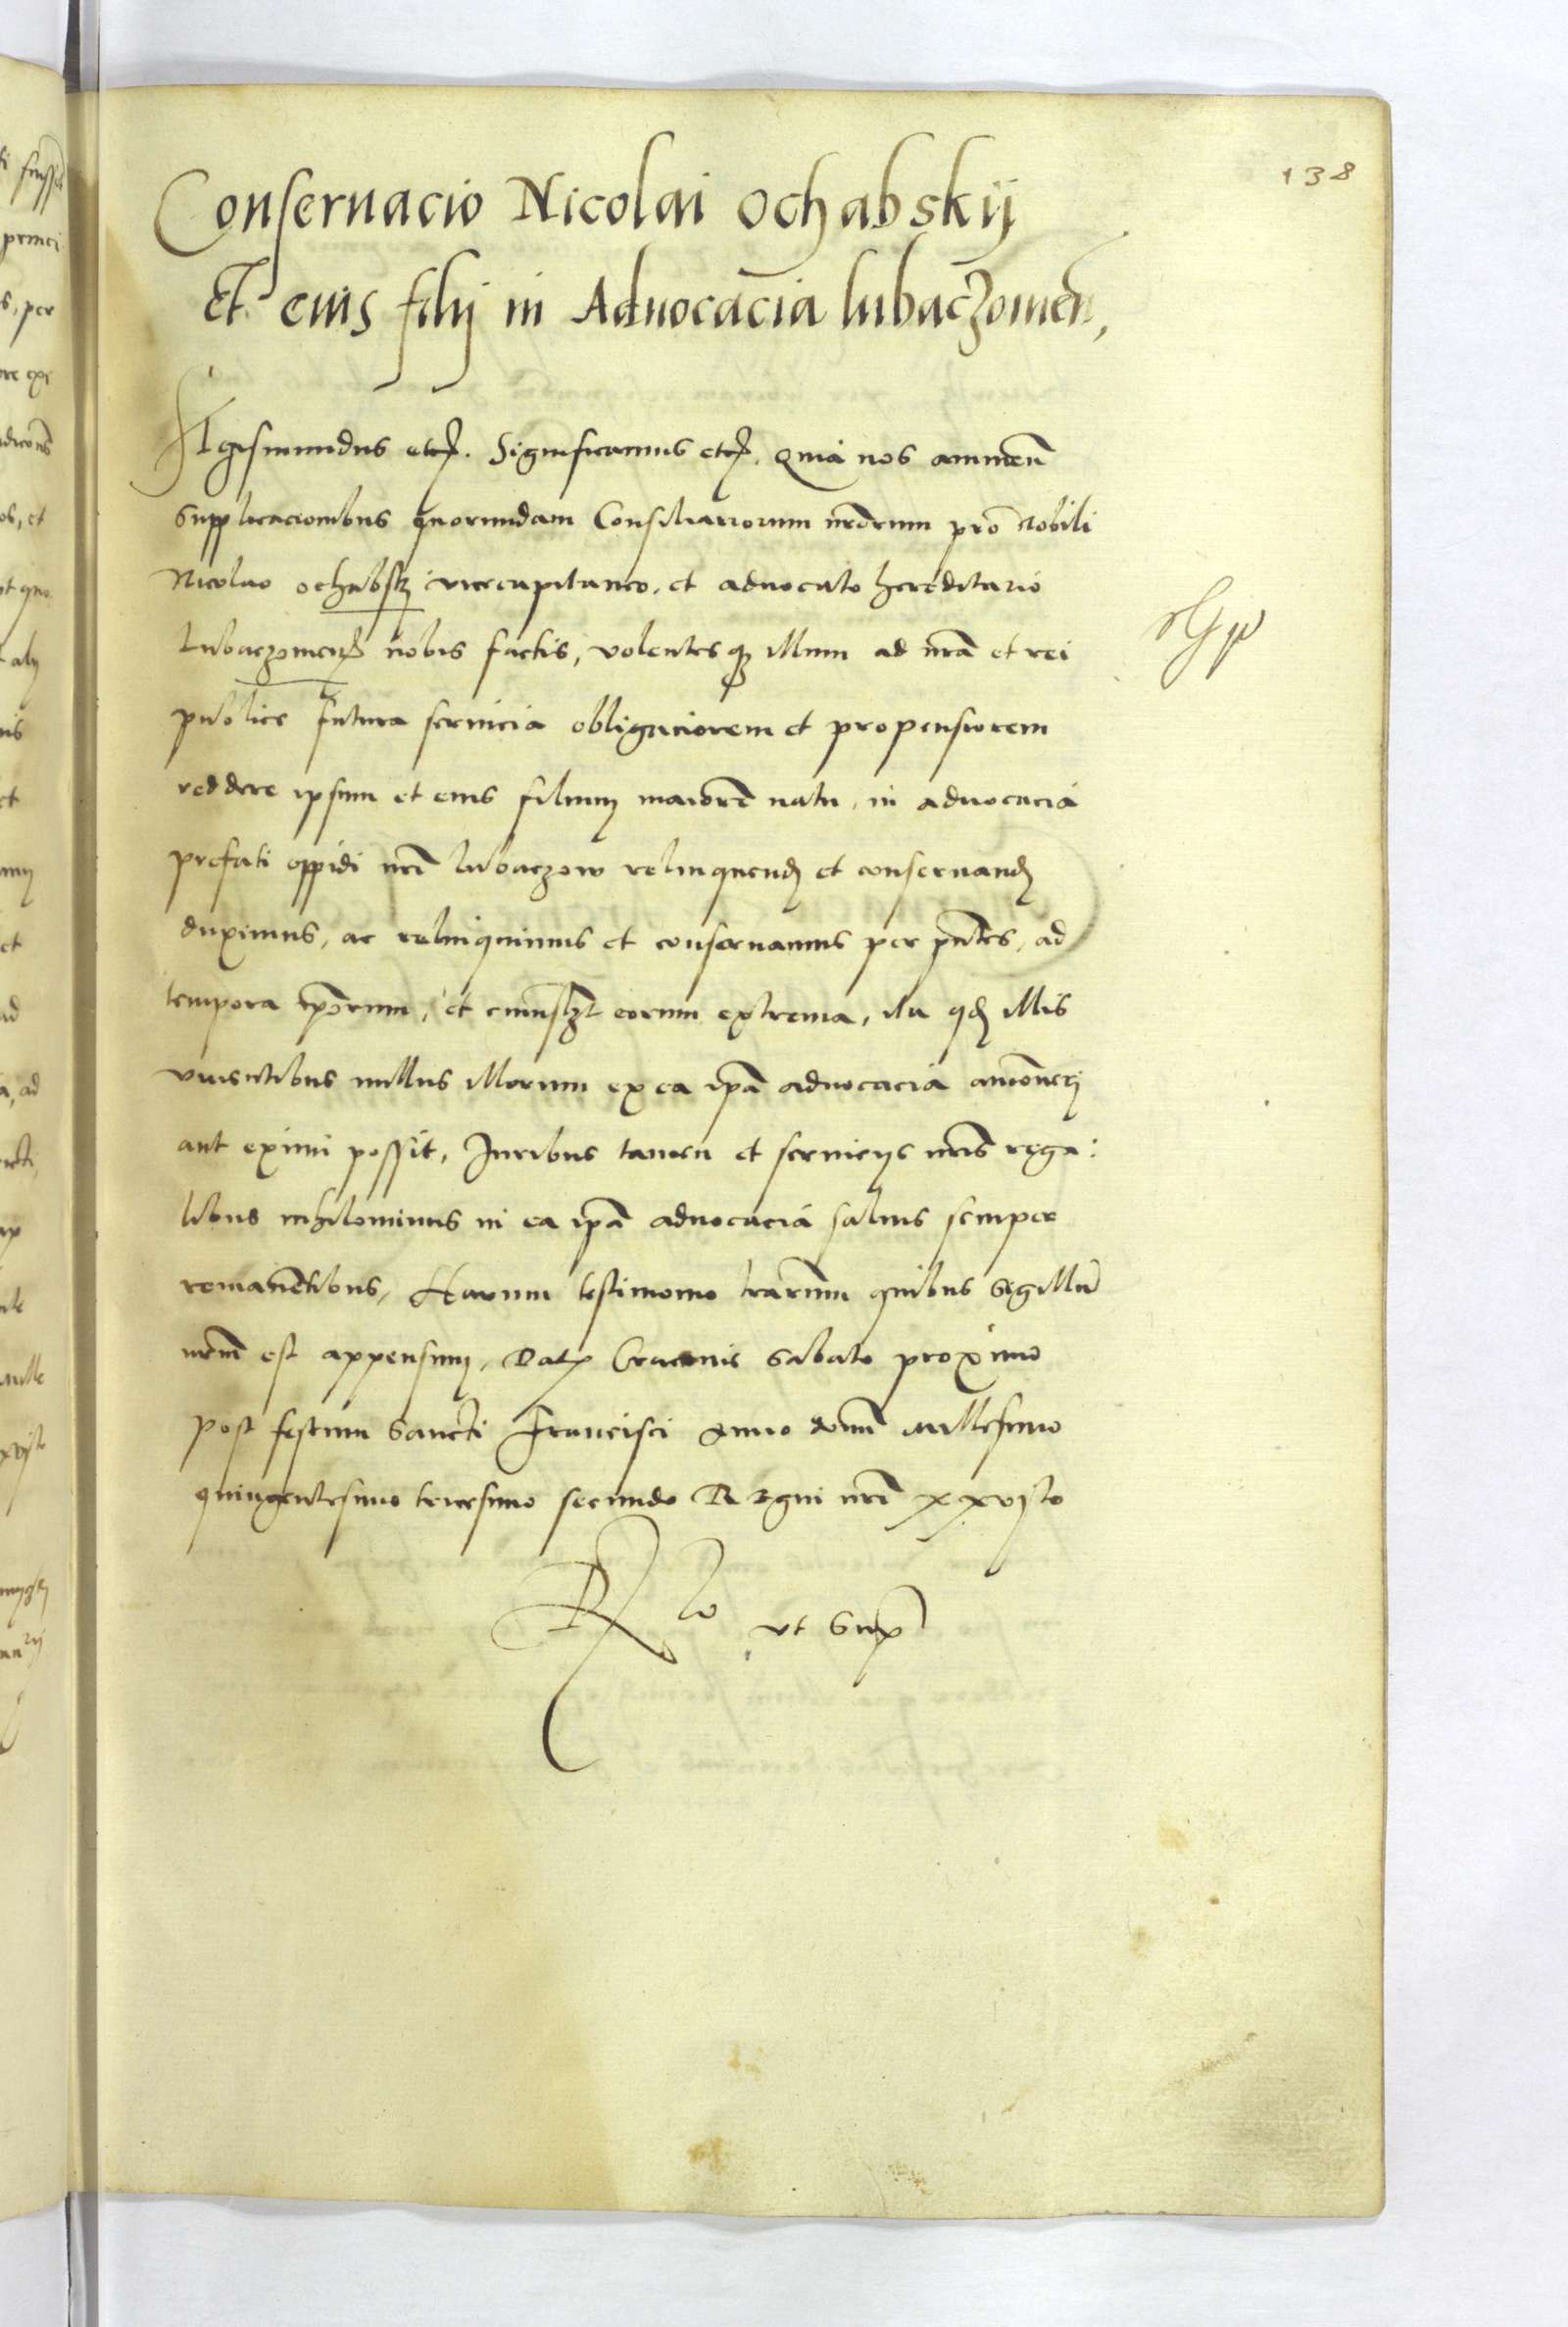 138
Conseruacio Nicolai Ochabskij
Et eius filij in Aduocacia lubaczouien̄,
Sigismundus etc̄. Significamus etc̄. Quia nos annuen̄
supplicacionibus quorundam Consiliariorum nr̄orum pro Nobili
Nicolao ochabskj vicecapitaneo, et aduocato hereditario
Lubaczouien̄ nobis factis, volentesqꝫ illum ad nr̄a et rei
publice futura seruicia obligaciorem et propensiorem
reddere ipsum et eius filium maiorē natu, in aduocacia
prefati oppidi nr̄i lubaczow relinquend̄ et conseruand̄
duximus, ac relinquimus et conseruamus per pn̄tes, ad
tempora ip̄orum, et cuiuslꝫt eorum extrema, ita qd̄ illis
viuentibus nullus illorum ex ea ip̄a aduocacia amoueri
aut eximi possit, Juribus tamen et seruicijs nr̄is rega:
libus nihilominus in ea ip̄a aduocacia saluis semper
remanētibus, Harum testimonio lr̄arum quibus sigillū
nr̄um est appensum, Dat̄ Cracouie Sabato proximo
post festum Sancti Francisci Anno domī Millesimo
quingentesimo tricesimo secundo Regni nr̄i xxvjto
Rlo vt Sup̄